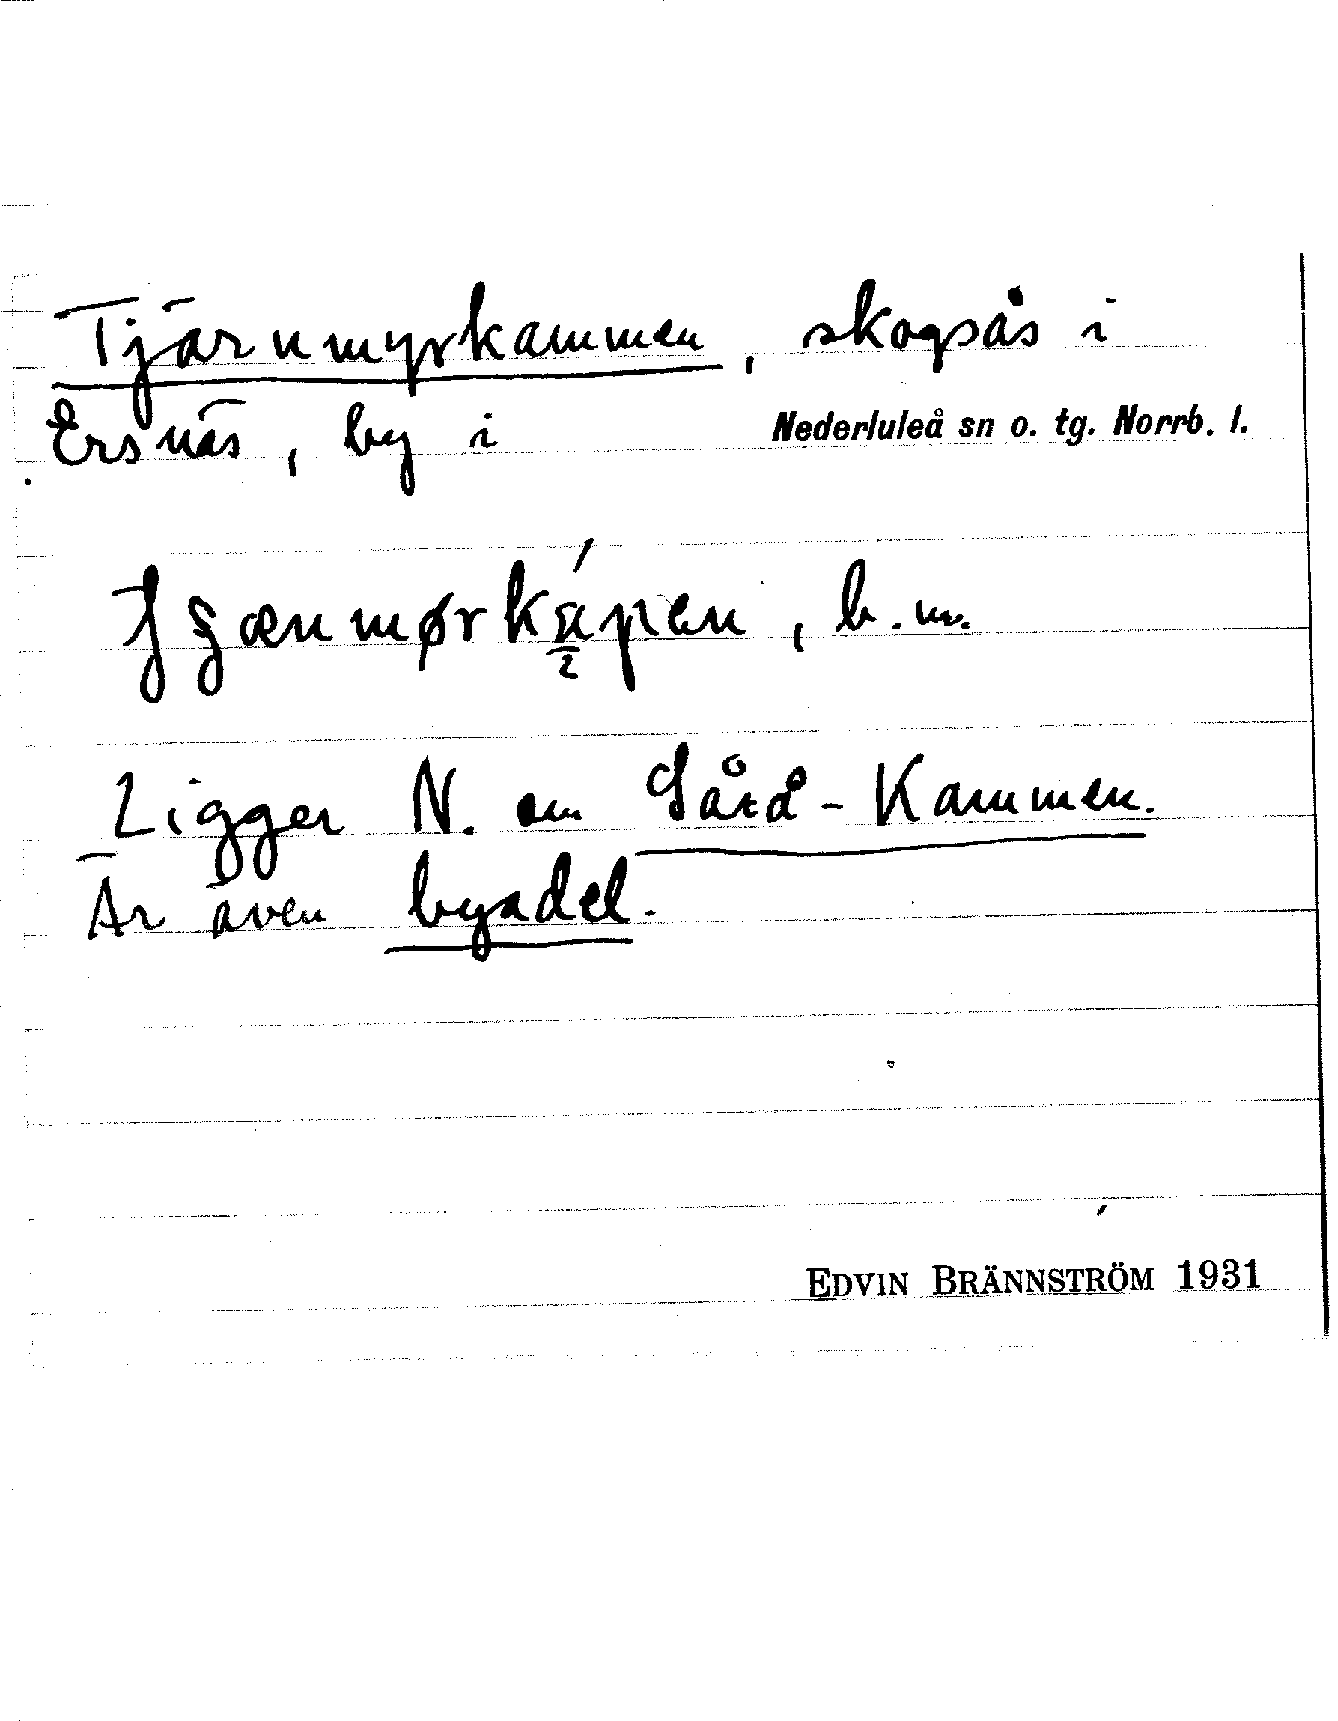 Tjärnmyrkammen, skogsås i
Ersnäs, by i Nederluleå sn o. tg. Norrb. l.
b.m.
Ligger N. om Kammen.
Är även byadel.
EDVIN BRÄNNSTRÖM 1931